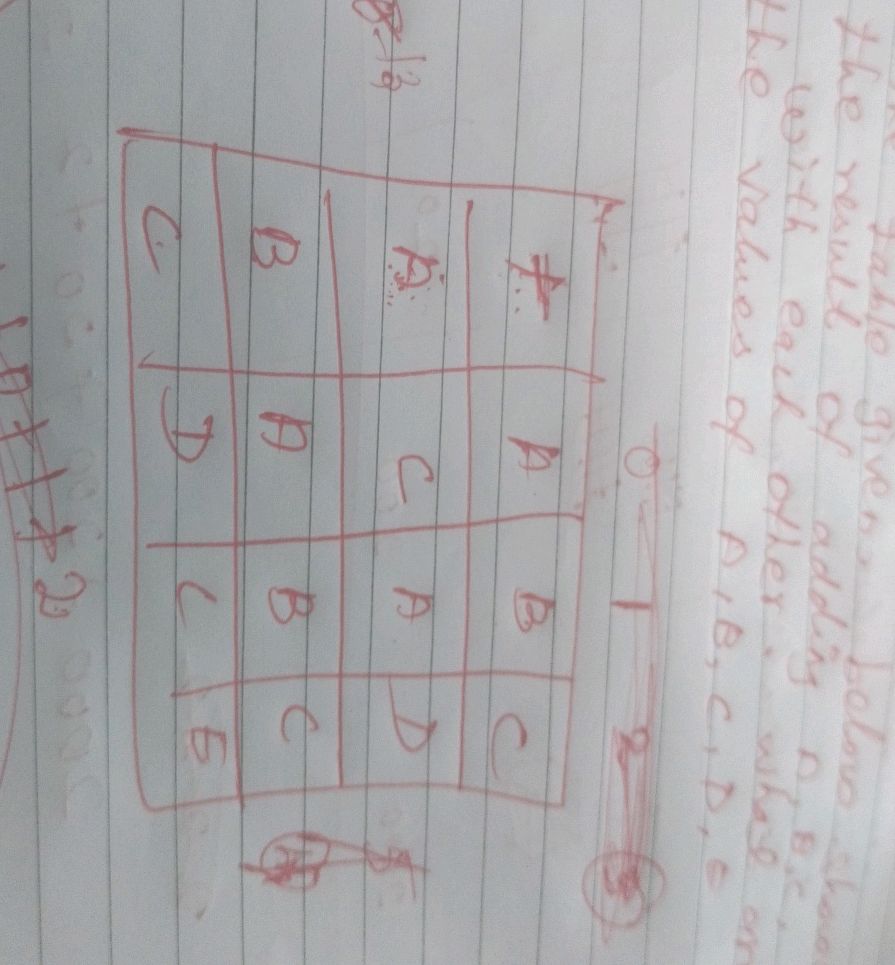 table given below
the result of adding A, B, C,
with each other. what
the values of A, B, C, D, e
0 1 2
+ A B C
A C A D
B A B C
C D C E
2